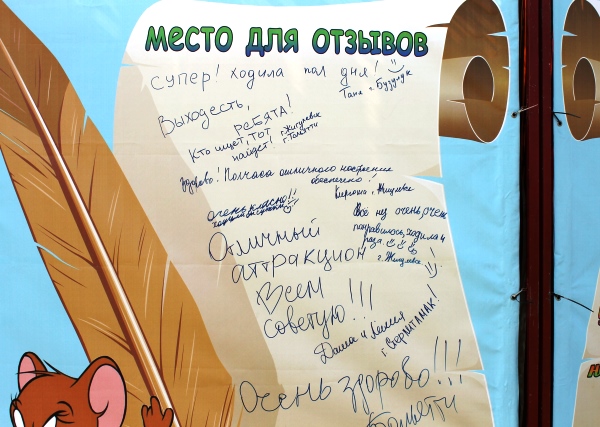 МЕСТО ДЛЯ ОТЗЫВОВ
СУПЕР! ХОДИЛА ПОЛ ДНЯ!
Таня г. Бузулук
Выходесть,
РЕБЯТА!
Кто ищет, тот г. Жигулевск
найдет! г. Тольятти
Здорово! Полчаса отличного настроение
обеспечено!
Кирюша, г. Жигулевск
ОЧЕНЬ КЛАСНО!!
Всё нр очень, очень
понравилось, ходила
раза
г. Жигулевск
Отличный
аттракцион
Всем
советую!!!
Даша и
г. СТЕРЛИТАМАК!
Очень здорово!!!
Тольятти